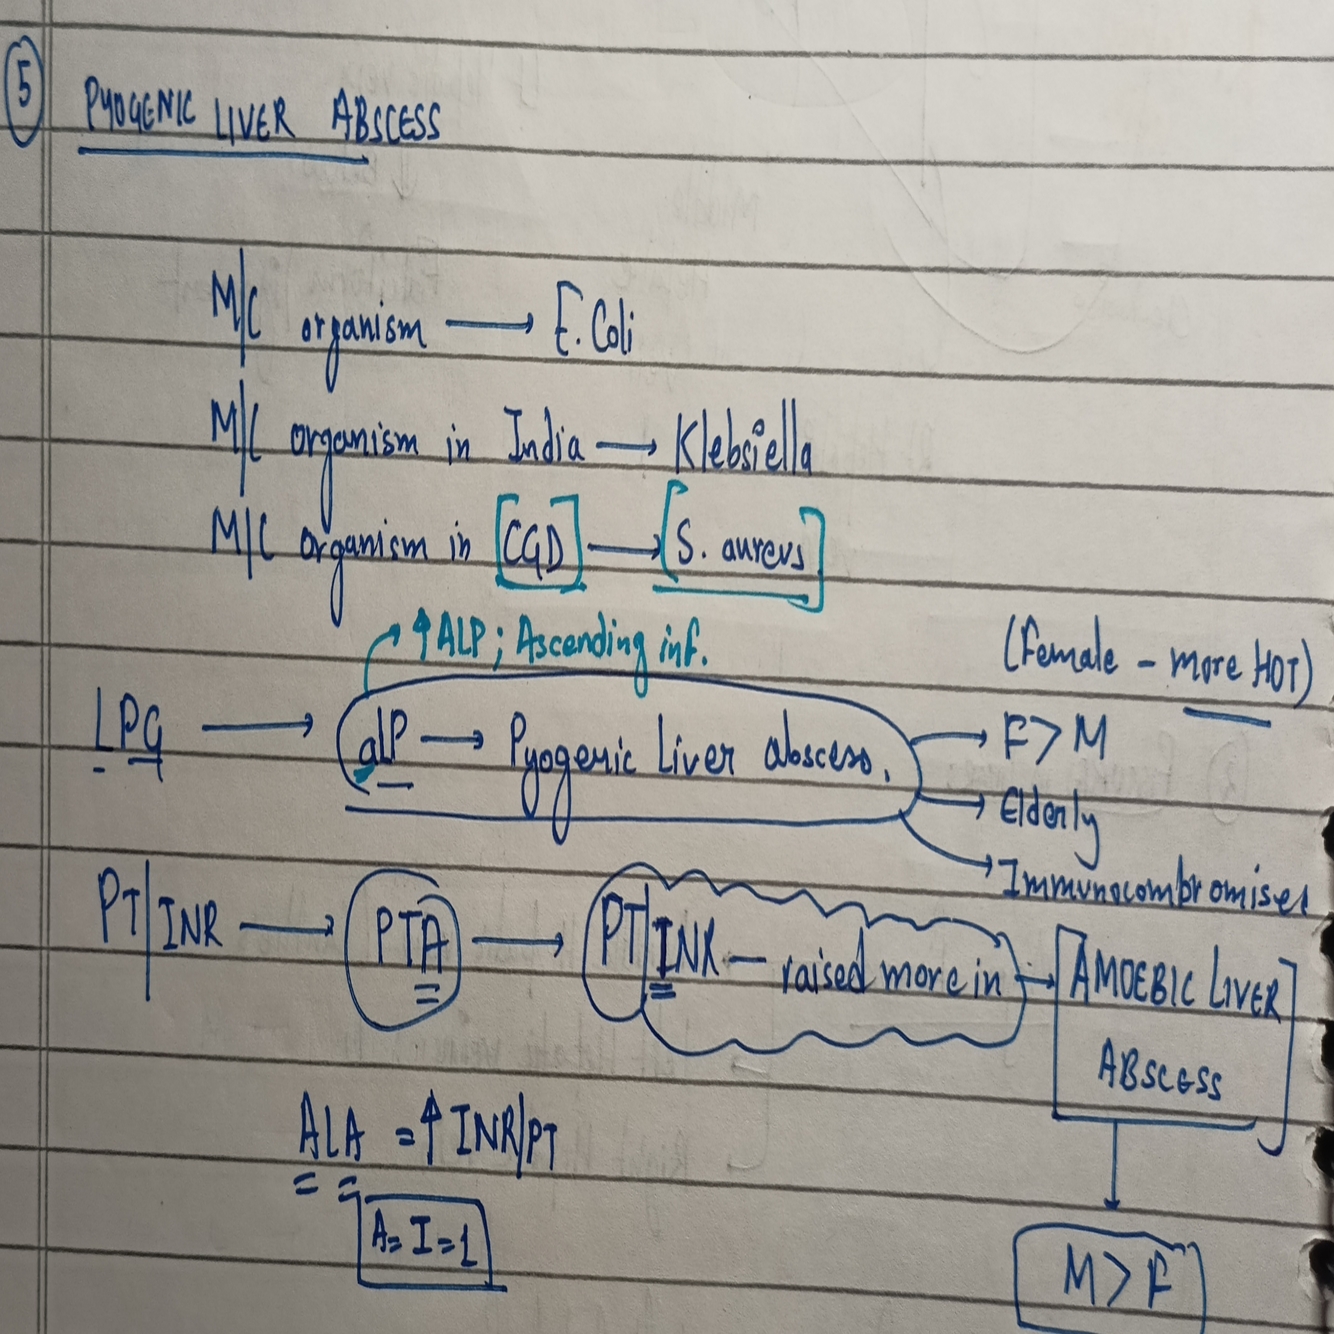 5 PYOGENIC LIVER ABSCESS
M/C organism → E. Coli
M/C organism in India → Klebsiella
M/C organism in [CGD] → [S. aureus]
↑ALP; Ascending inf.
(Female - more HOT)
LPG → alP → Pyogenic Liver abscess. → F>M
→ Elderly
→ Immunocombromised
PT/INR → PTA → PT/INR - raised more in → AMOEBIC LIVER
ABSCESS
ALA = ↑ INR/PT
A=I=1
M>F